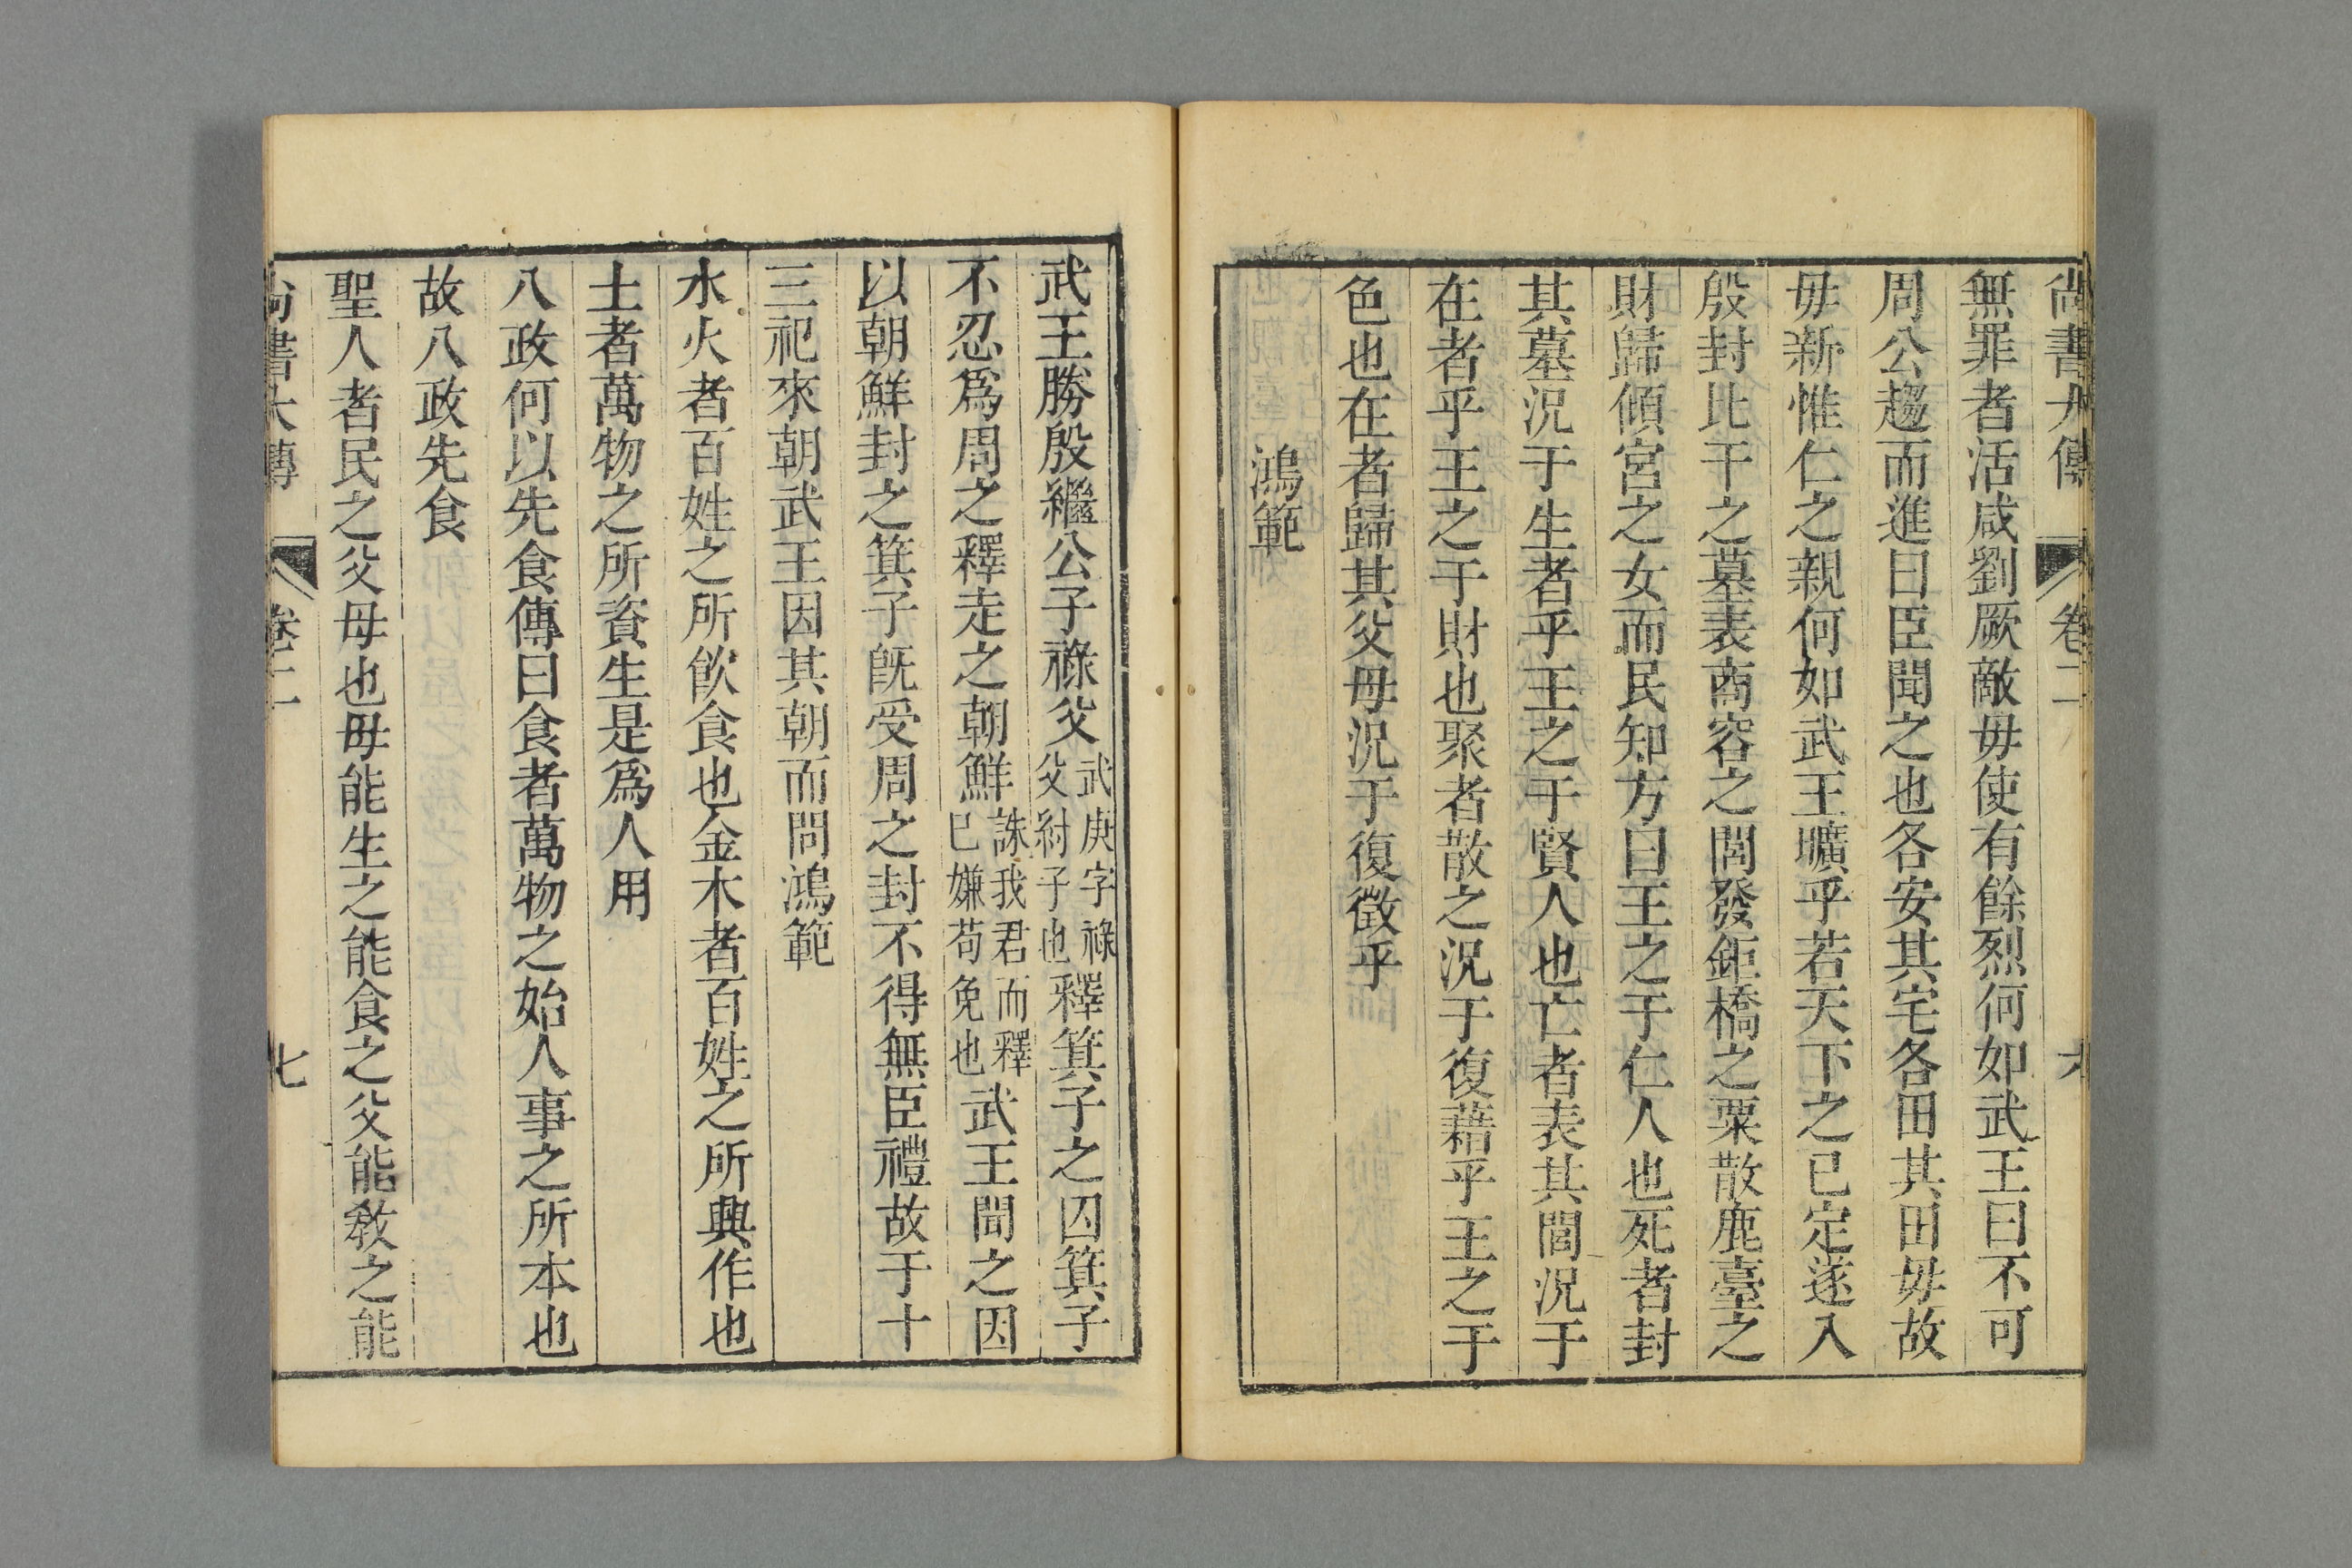 尚書大傳 卷二 六
無罪者活咸劉厥敵毋使有餘烈何如武王曰不可
周公趨而進曰臣聞之也各安其宅各田其田毋故
毋新惟仁之親何如武王曠乎若天下之已定遂入
殷封比干之墓表商容之閭發鉅橋之粟散鹿臺之
財歸傾宮之女而民知方曰王之于仁人也死者封
其墓況于生者乎王之于賢人也亡者表其閭況于
在者乎王之于財也聚者散之況于復藉乎王之于
色也在者歸其父母況于復徵乎
鴻範
武王勝殷繼公子祿父武庚字祿父紂子也釋箕子之囚箕子
不忍爲周之釋走之朝鮮誅我君而釋已嫌苟免也武王聞之因
以朝鮮封之箕子旣受周之封不得無臣禮故于十
三祀來朝武王因其朝而問鴻範
水火者百姓之所飮食也金木者百姓之所興作也
土者萬物之所資生是爲人用
八政何以先食傳曰食者萬物之始人事之所本也
故八政先食
聖人者民之父母也母能生之能食之父能敎之能
尚書大傳 卷二 七